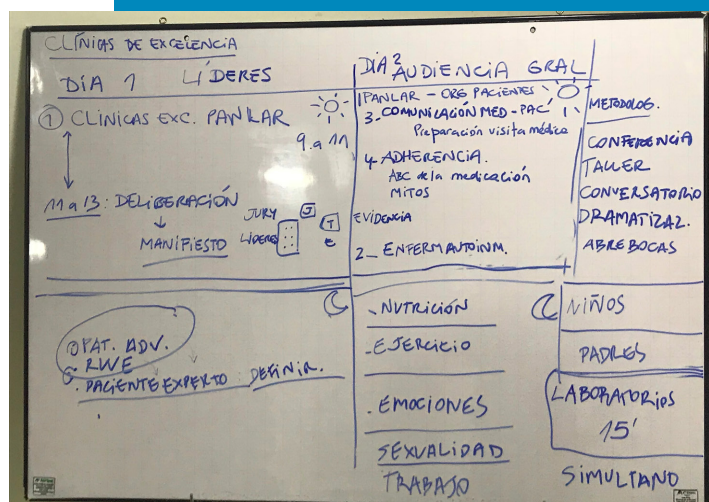 CLÍNICAS DE EXCELENCIA
DÍA 1 LÍDERES
① CLÍNICAS EXC. PANLAR
9. a 11
11 a 13: DELIBERACIÓN
MANIFIESTO
JURY
LÍDERES
J
T
e
PAT. ADV.
RWE
PACIENTE EXPERTO: DEFINIR.
DÍA 2
AUDIENCIA GRAL
1 PANLAR - ORG PACIENTES
3- COMUNICACIÓN MED-PAC
Preparación visita médica
4- ADHERENCIA.
ABC de la medicación
MITOS
EVIDENCIA
2_ ENFERM AUTOINM.
- NUTRICIÓN
- EJERCICIO
- EMOCIONES
SEXUALIDAD
TRABAJO
METODOLOG.
CONFERENCIA
TALLER
CONVERSATORIO
DRAMATIZAC.
ABREBOCAS
NIÑOS
PADRES
LABORATORIOS
15'
SIMULTANO